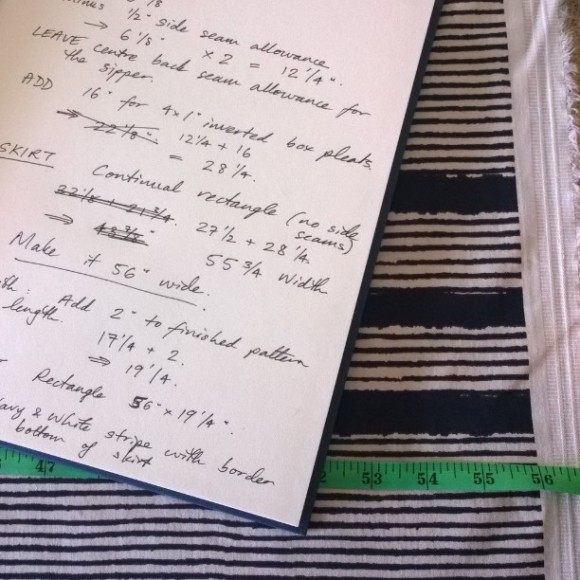 1/8
minus 1/2" side seam allowance
⇒ 6 1/8" x 2 = 12 1/4".
LEAVE centre back seam allowance for
the zipper.
ADD 16" for 4x1" inverted box pleats.
⇒ 22 1/8". 12 1/4 + 16
= 28 1/4.
SKIRT Continual rectangle (no side
seams)
22 1/8 + 21 3/4. 27 1/2 + 28 1/4.
⇒ 43 3/8" 55 3/4 Width
Make it 56" wide.
th: Add 2" to finished pattern
length.
17 1/4 + 2.
⇒ 19 1/4.
Rectangle 56" x 19 1/4".
avy & white stripe with border
bottom of skirt
47 53 54 55 56